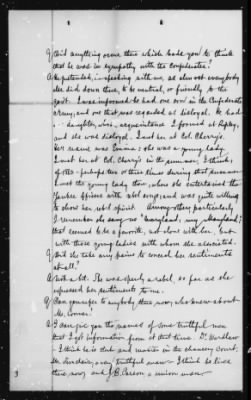 Q. Did anything occur there which made you to think
that he was in sympathy with the confederates?
A. He pretended, in speaking with me, as almost everybody
else did down there, to be neutral, or friendly to the
govt. I was informed he had one son in the Confederate
army, and one that was regarded as disloyal. He had
a daughter, whose acquaintance I formed at Ripley,
and she was disloyal. I met her at Col. Cherry's.
Her name was Emma; she was a young lady.
I met her at Col. Cherry's in the summer, I think,
of 1862 - perhaps two or three times during that summer.
I met the young lady there, where she entertained the
Yankee officers with rebel songs, and was quite willing
to show her rebel spirit. Among other particularly
I remember she sang us "Maryland, my Maryland;"
that seemed to be a favorite, not alone with her, but
with those young ladies with whom she associated.
Q. Did she take any pains to conceal her sentiments
at all?
A. Not a bit. She was openly a rebel, so far as she
expressed her sentiments to me.
Q. Can you refer to anybody there, now, who knew about
Mr.
A. I can give you the names of some truthful men
that I got information from at that time. Dr.
I think he is clerk and master in the chancery court;
Mr. a very truthful man I think he lives
there, now; and J. B. a union man
3